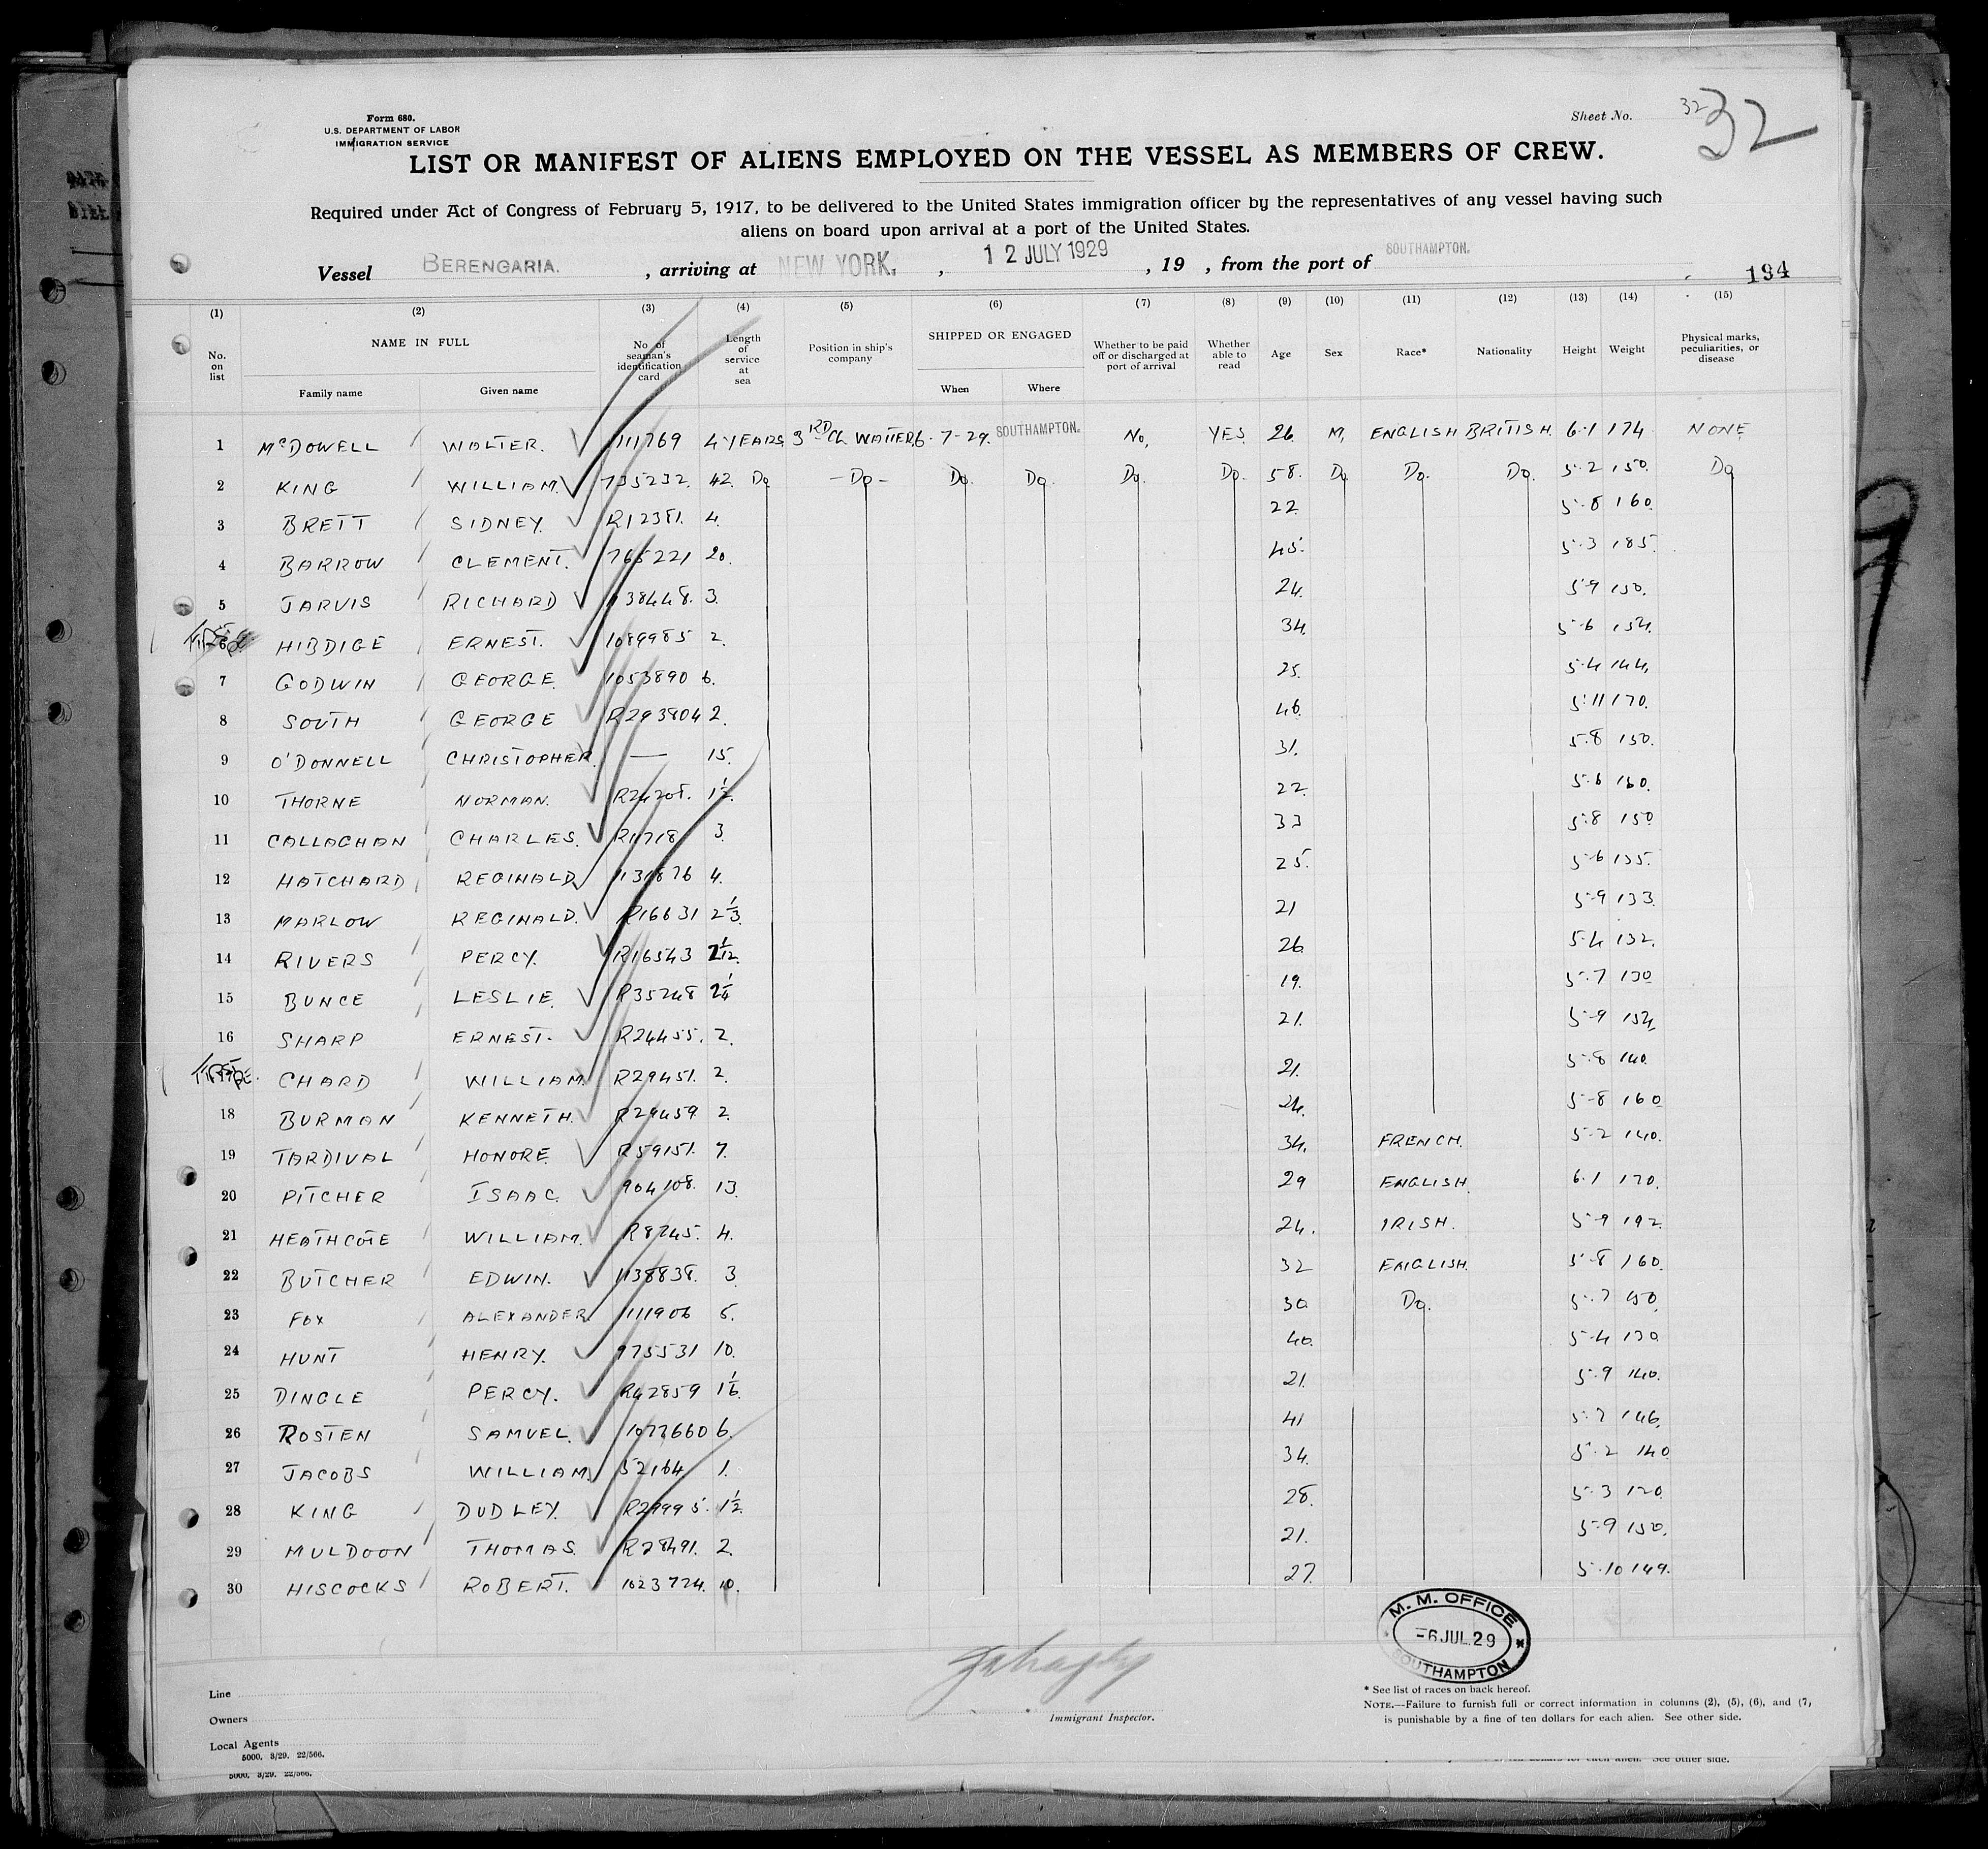 Form 680.
U.S. DEPARTMENT OF LABOR
IMMIGRATION SERVICE
Sheet No. 32
32
LIST OR MANIFEST OF ALIENS EMPLOYED ON THE VESSEL AS MEMBERS OF CREW.
Required under Act of Congress of February 5, 1917, to be delivered to the United States immigration officer by the representatives of any vessel having such
aliens on board upon arrival at a port of the United States.
Vessel BERENGARIA. , arriving at NEW YORK. , 12 JULY 1929 , 19 , from the port of SOUTHAMPTON.
194
(1) (2) (3) (4) (5) (6) (7) (8) (9) (10) (11) (12) (13) (14) (15)
No. on list NAME IN FULL Family name Given name No. of seaman's identification card Length of service at sea Position in ship's company SHIPPED OR ENGAGED When Where Whether to be paid off or discharged at port of arrival Whether able to read Age Sex Race* Nationality Height Weight Physical marks, peculiarities, or disease
1 McDOWELL WALTER. 111769 4 YEARS 3RD CL WAITER 6-7-29. SOUTHAMPTON. No, YES 26 M, ENGLISH BRITISH. 6.1 174 NONE
2 KING WILLIAM. 735232. 42. Do - Do - Do. Do. Do. Do. 58. Do Do. Do. 5.2 150. Do
3 BRETT SIDNEY. R12381. 4. 22 5.8 160.
4 BARROW CLEMENT. 765221 20. 45. 5.3 185.
5 JARVIS RICHARD 38448. 3. 24. 5.9 150.
6 HIBDIGE ERNEST. 1089985 2. 34. 5.6 154.
7 GODWIN GEORGE. 1053890 6. 25. 5.4 144.
8 SOUTH GEORGE R293804 2. 46. 5.11 170.
9 O'DONNELL CHRISTOPHER. — 15. 31. 5.8 150.
10 THORNE NORMAN. R24208. 1½. 22. 5.6 160.
11 CALLAGHAN CHARLES. R1718 3. 33 5.8 150
12 HATCHARD REGINALD 1131876 4. 25. 5.6 135.
13 MARLOW REGINALD. R16631 2⅓ 21 5.9 133.
14 RIVERS PERCY. R16543 2 1/12. 26 5.4 132.
15 BUNCE LESLIE. R35248 2¼ 19. 5.7 130
16 SHARP ERNEST. R24455. 2. 21. 5.9 154
CHARD WILLIAM R29451. 2. 21. 5.8 140.
18 BURMAN KENNETH. R29459 2. 24. 5.8 160
19 TARDIVAL HONORE R59151. 7. 34. FRENCH. 5.2 140.
20 PITCHER ISAAC. 904108. 13. 29 ENGLISH. 6.1 170.
21 HEATHCOTE WILLIAM. R8745. 4. 24. IRISH. 5.9 192
22 BUTCHER EDWIN. 1138838. 3. 32 ENGLISH. 5.8 160.
23 FOX ALEXANDER 1111906 5. 30 Do. 5.7 150.
24 HUNT HENRY. 975531 10. 40. 5.4 130
25 DINGLE PERCY. R42859 1⅙. 21. 5.9 140.
26 ROSTEN SAMUEL. 1073660 6. 41 5.7 146.
27 JACOBS WILLIAM. 52164 1. 34. 5.2 140
28 KING DUDLEY. R29995. 1½. 28. 5.3 120.
29 MULDOON THOMAS. R28491. 2. 21. 5.9 150.
30 HISCOCKS ROBERT. 1023724. 10. 27. 5.10 149.
M. M. OFFICE
-6 JUL. 29
SOUTHAMPTON
Line
Owners
Local Agents
5000. 3/29. 22/566.
5000. 3/29. 22/566.
Immigrant Inspector.
* See list of races on back hereof.
NOTE.—Failure to furnish full or correct information in columns (2), (5), (6), and (7,
is punishable by a fine of ten dollars for each alien. See other side.
See other side.